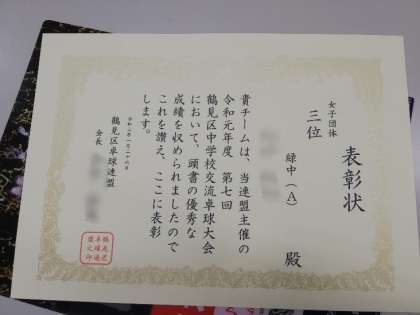 表彰状
女子団体
三位
緑中(A)
殿
貴チームは、当連盟主催の
令和元年度 第七回
鶴見区中学校交流卓球大会
において、頭書の優秀な
成績を収められましたので
これを讃え、ここに表彰
します。
鶴見区卓球連盟
会長